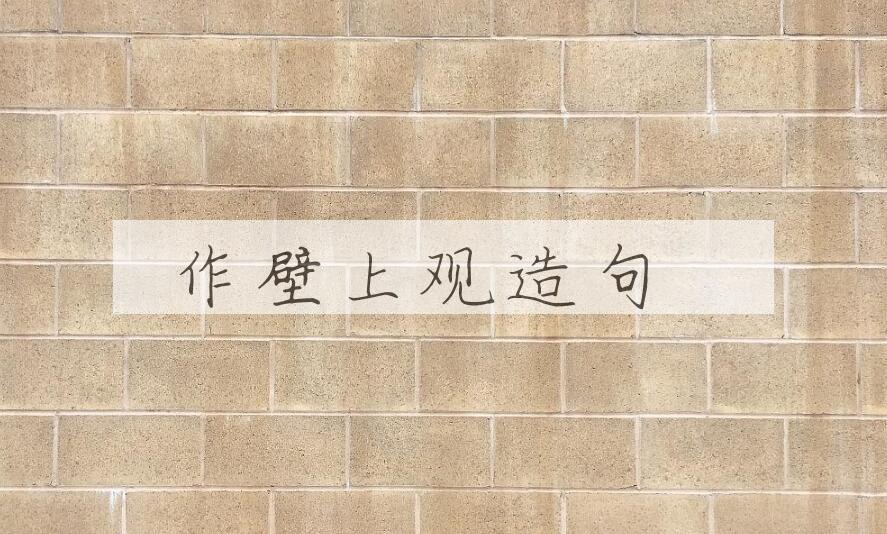 作壁上观造句